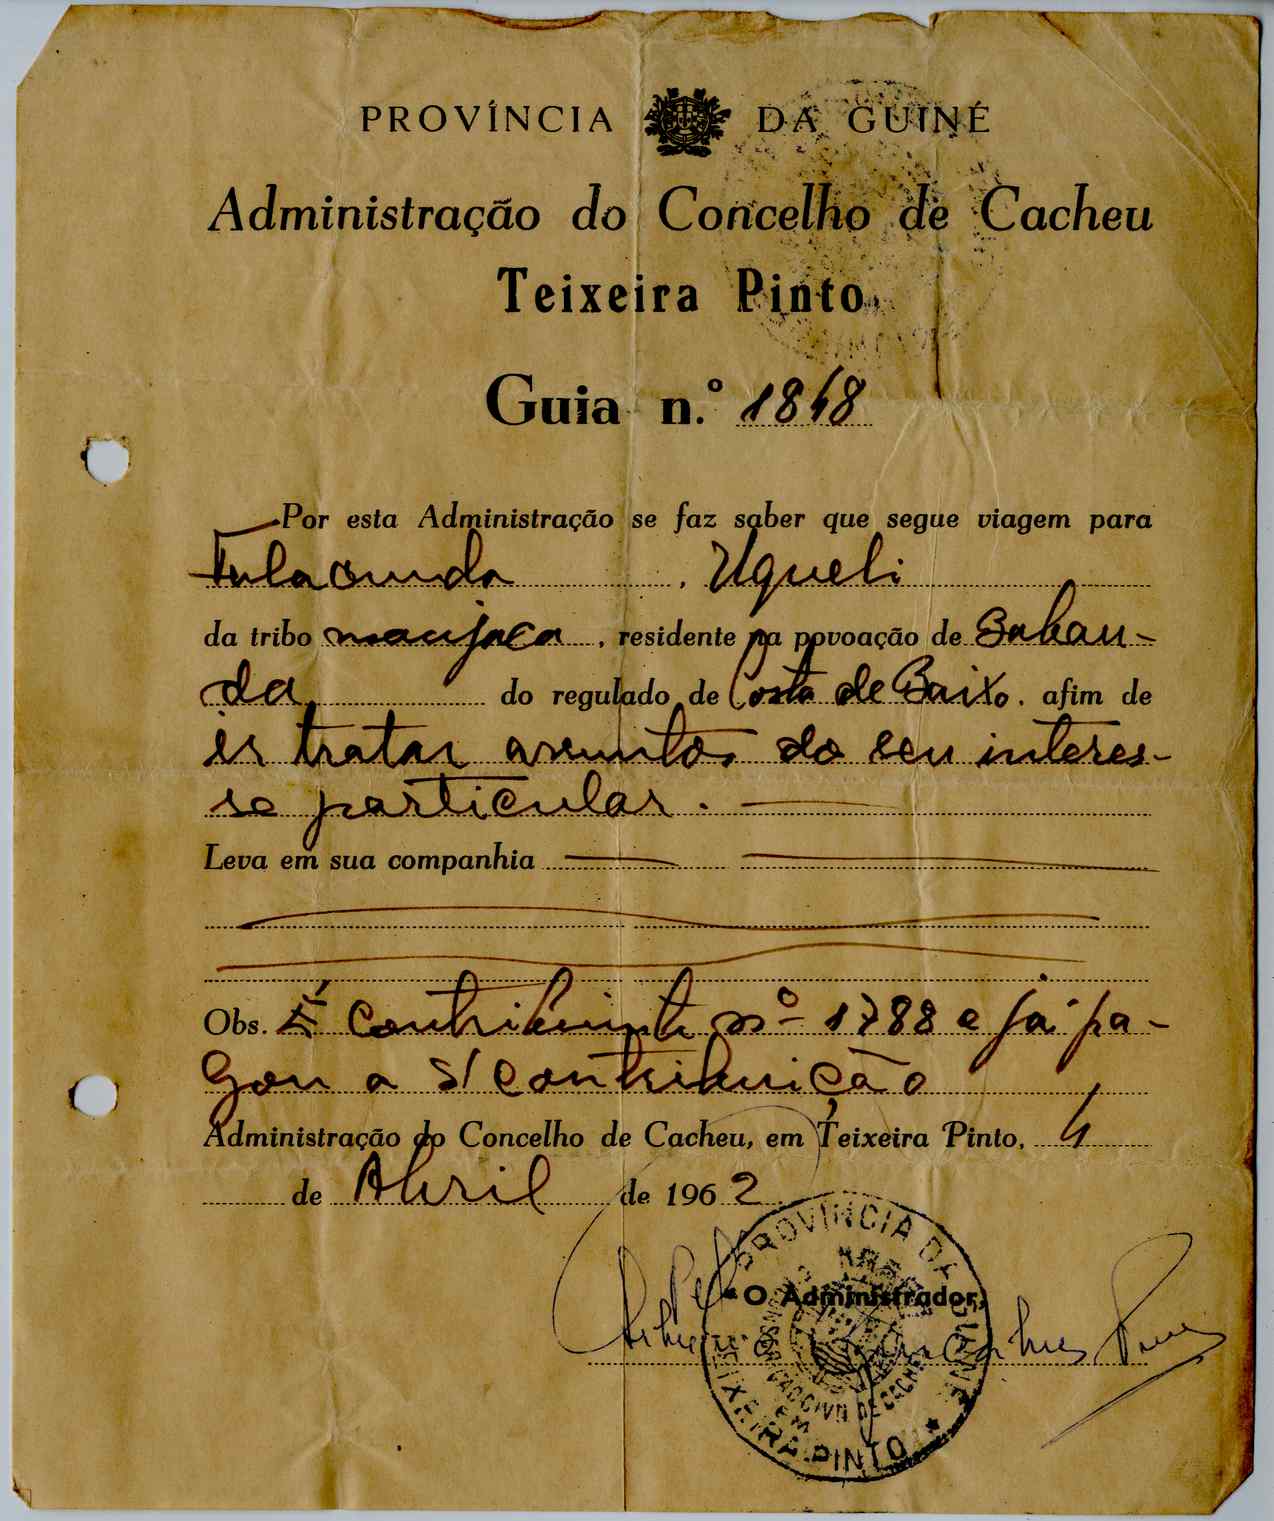 PROVÍNCIA DA GUINÉ
Administração do Concelho de Cacheu
Teixeira Pinto
Guia n.º 1848
Por esta Administração se faz saber que segue viagem para
Fulacunda, Uqueli
da tribo manjaca, residente na povoação de Baban-
da do regulado de Costa de Baixo, afim de
ir tratar assuntos do seu interes-
se particular.
Leva em sua companhia
Obs. É contribuinte nº 1788 e já pa-
gou a s/ contribuição
Administração do Concelho de Cacheu, em Teixeira Pinto, 4
de Abril de 1962
PROVÍNCIA DA GUINÉ
O Administrador,
TEIXEIRA PINTO